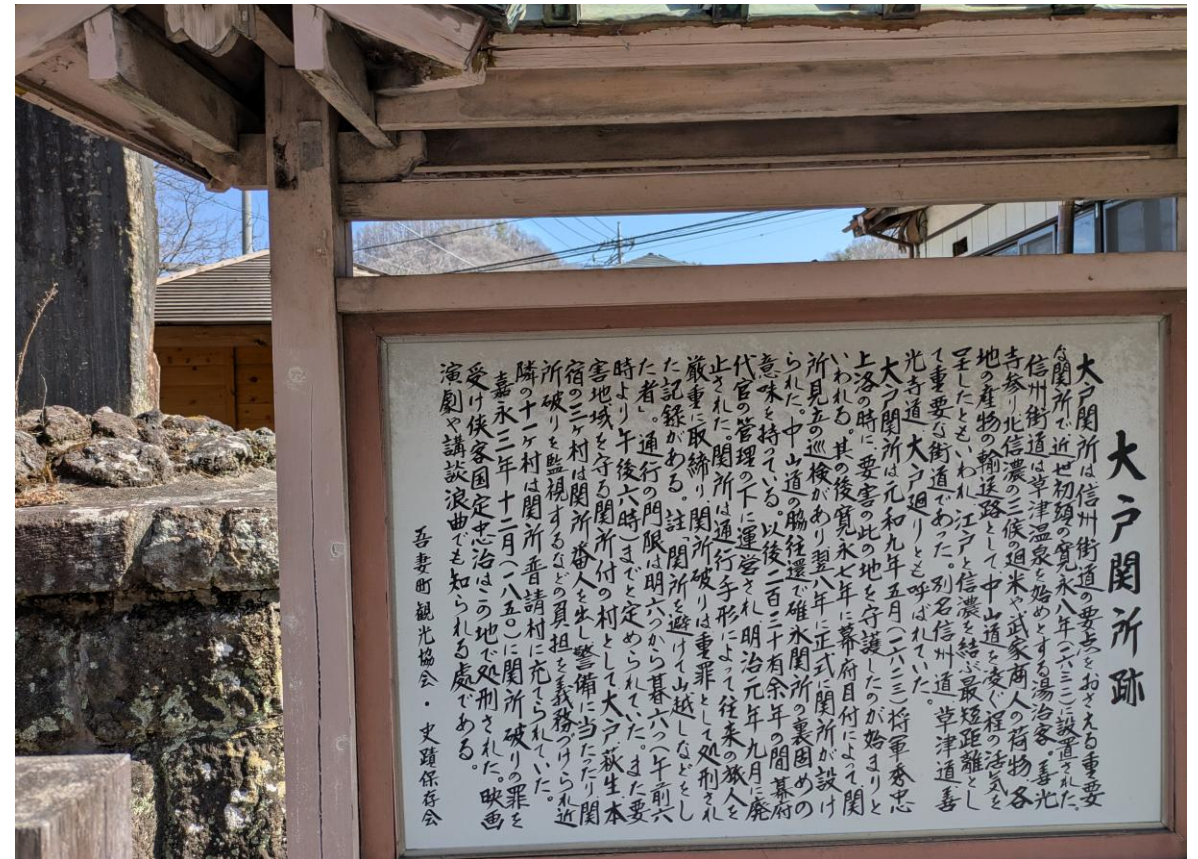 大戸関所跡
大戸関所は信州街道の要点をおさえる重要
な関所で近世初頭の寛永八年(一六三一)に設置された。
信州街道は草津温泉を始めとする湯治客。善光
寺参り北信濃の三候の廻米や武家商人の荷物各
地の産物の輸送路として中山道を凌ぐ程の活気を
呈したともいわれ江戸と信濃を結ぶ最短距離とし
て重要な街道であった。別名信州道 草津道 善
光寺道 大戸廻りとも呼ばれていた。
大戸関所は元和九年五月(一六二三)将軍秀忠
上洛の時に要害の此の地を守護したのが始まりと
いわれる。其の後寛永七年に幕府目付によって関
所見立の巡検があり翌八年に正式に関所が設け
られた。中山道の脇往還で碓氷関所の裏固めの
意味を持っている。以後二百三十有余年の間幕府
代官の管理の下に運営され明治元年九月に廃
止された。関所は通行手形によって往来の旅人を
厳重に取締り関所破りは重罪として処刑され
た記録がある。註「関所を避けて山越しなどをし
た者」。通行の門限は明六つから暮六つ(午前六
時より午後六時)までと定められていた。また要
害地域を守る関所付の村として大戸萩生本
宿の三ヶ村は関所へ番人を出し警備に当たったり関
所破りを監視するなどの負担を義務づけられ近
隣の十一ヶ村は関所普請村に充てられていた。
嘉永三年十二月(一八五〇)に関所破りの罪を
受け侠客国定忠治はこの地で処刑された。映画
演劇や講談浪曲でも知られる處である。
吾妻町観光協会・史蹟保存会